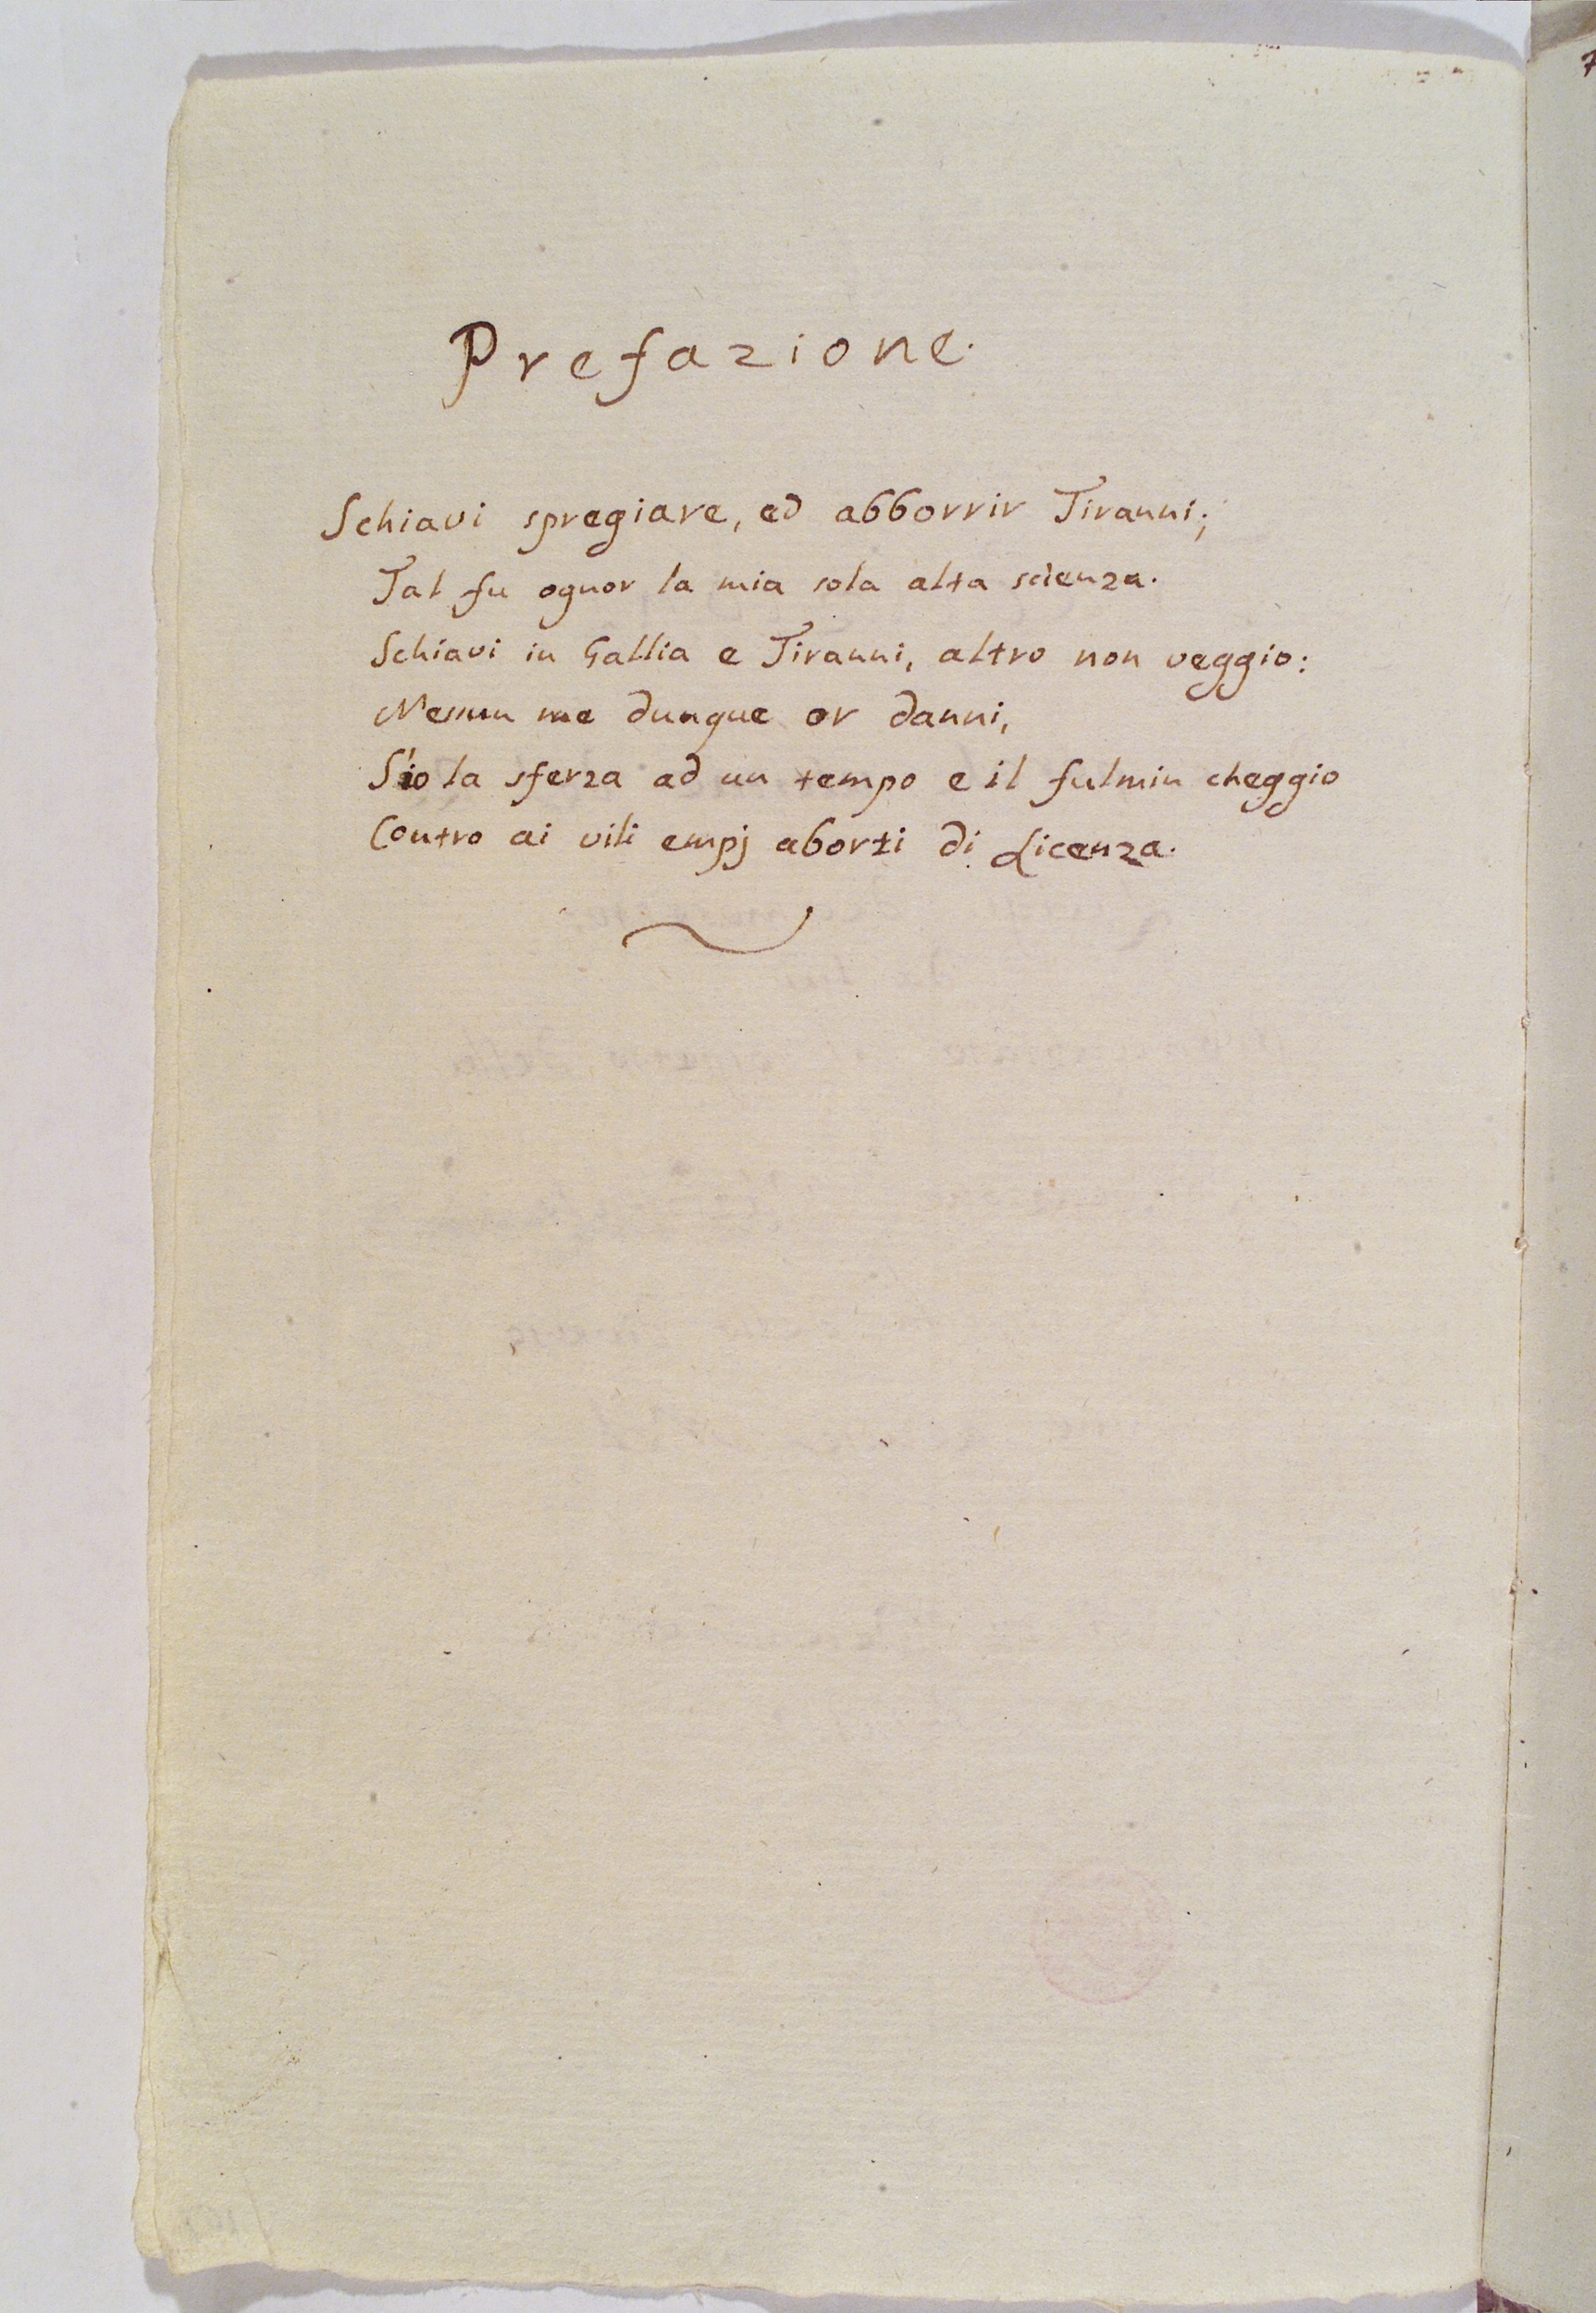 Prefazione.
Schiavi spregiare, ed abborrir Tiranni;
Tal fu ognor la mia sola alta scienza.
Schiavi in Gallia e Tiranni, altro non veggio:
Nessun me dunque or danni,
S'io la sferza ad un tempo e il fulmin cheggio
Contro ai vili empj aborti di Licenza.
7